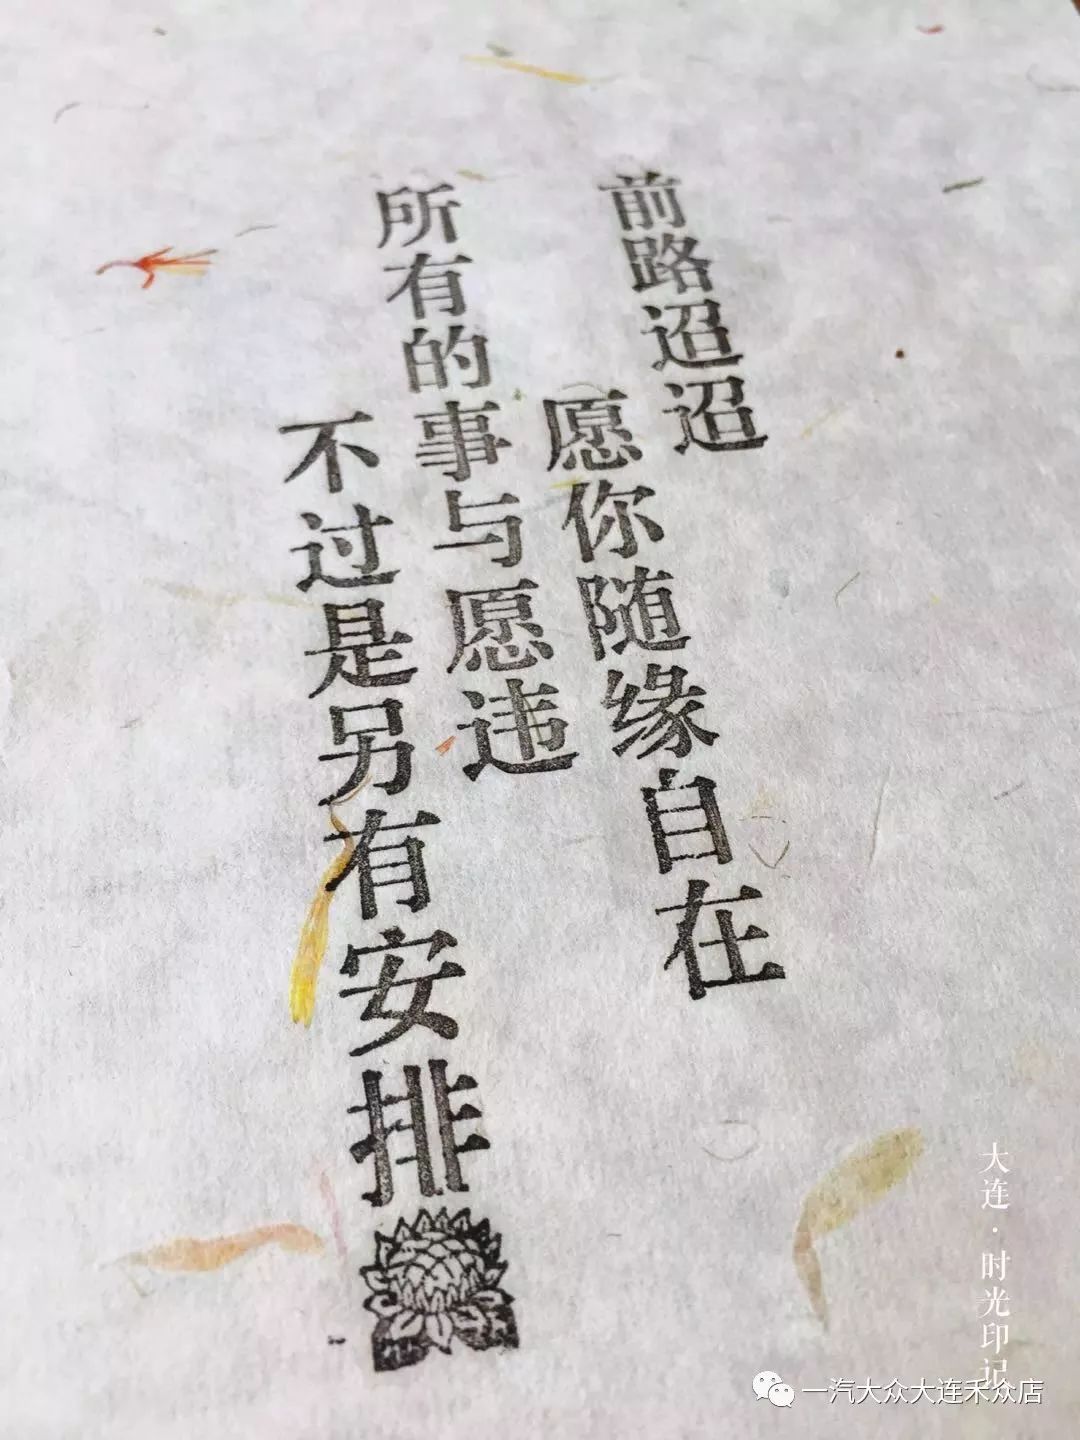 前路迢迢
愿你随缘自在
所有的事与愿违
不过是另有安排
大连·时光印记
一汽大众大连禾众店